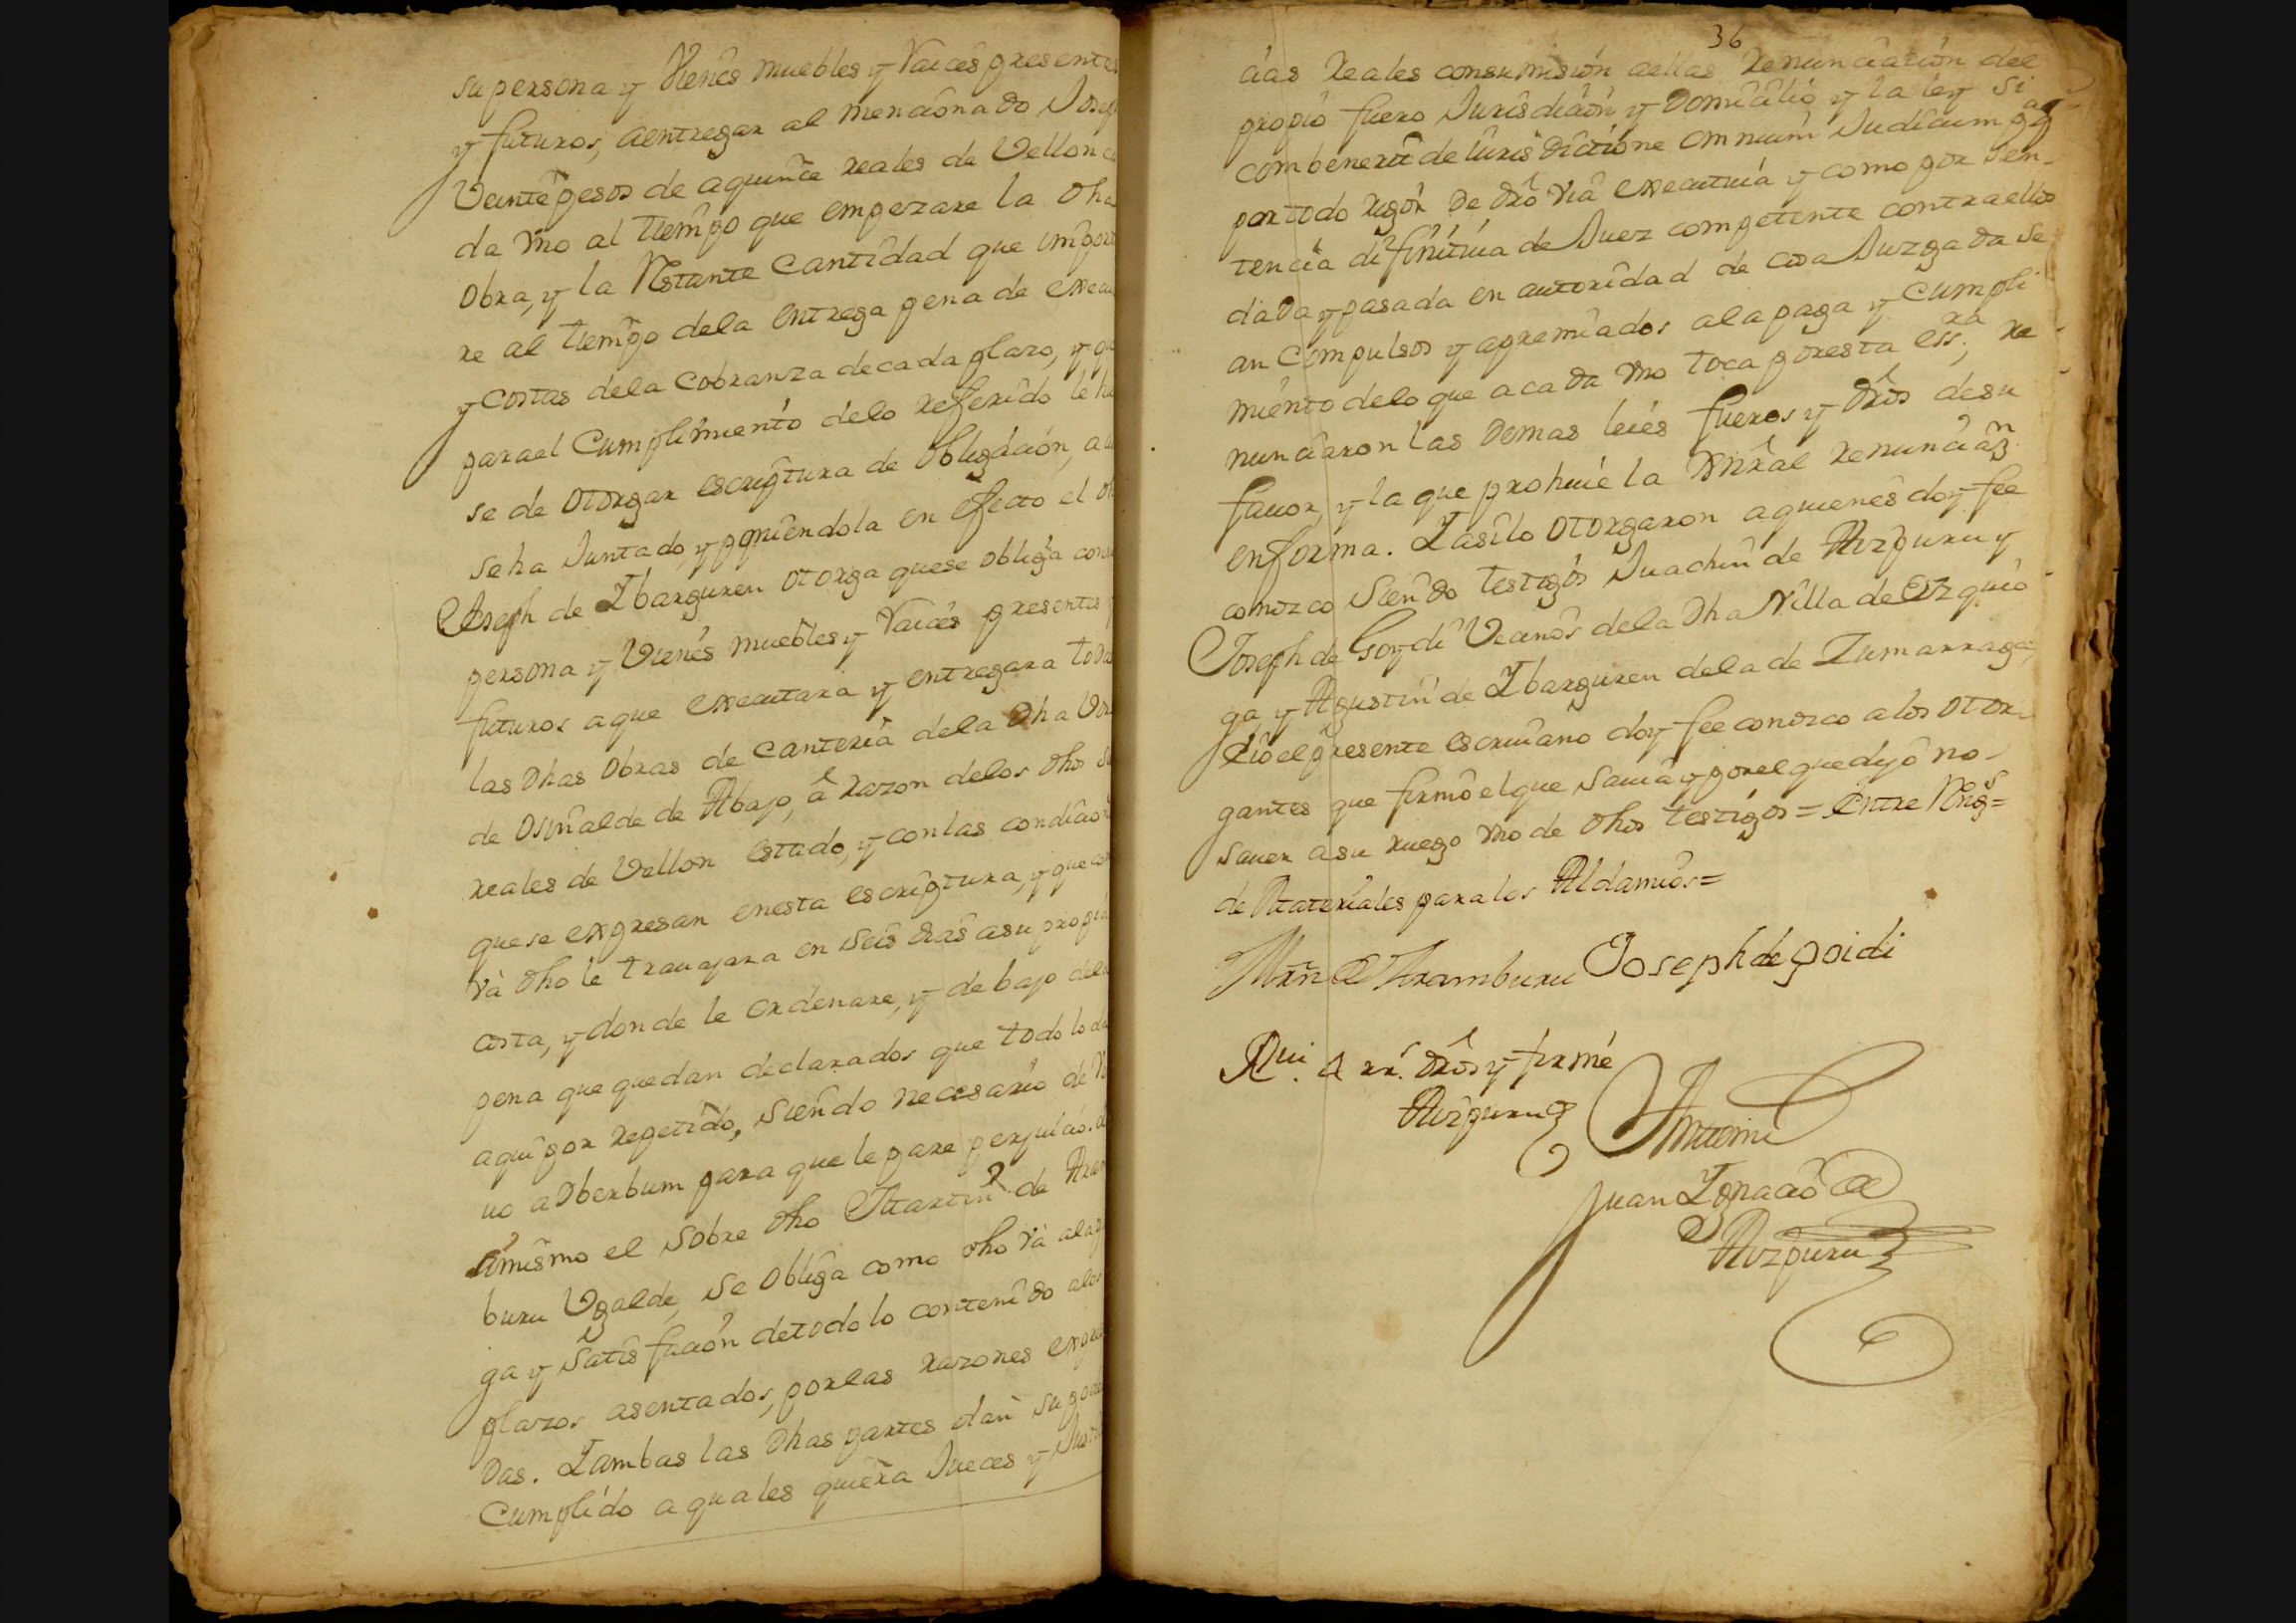 su persona y Vienes muebles y Raices presentes
y futuros, aentregar al mencionado Joseph
Veinte pesos de aquince reales de Vellon ca
da vno al tiempo que empezare la dha
obra, y la Restante Cantidad que import
re al tiempo dela entrega pena de execu
y costas dela Cobranza decada plazo, y que
parael Cumplimiento delo referido le hi
se de otorgar escriptura de obligacion, a cu
seha Juntado, y poniendola en efecto el dh
Joseph de Ybarguren otorga quese obliga consu
persona y Vienes muebles y Raices presentes y
futuros aque executara y entregara todas
las dhas obras de canteria dela dha
de Osinalde de Abajo, â Razon delos dhos
reales de Vellon estado, y conlas condicion
quese expresan enesta escriptura, y que co
và dho le trauajara en seis dias asu propia
costa, y donde le ordenare, y debajo dela
pena que quedan declarados que todo lo da
aqui por repetido, siendo necesario de
uo adberbum para que le pare perjuicio. a
simismo el sobre dho Martin de Aran
buru Vgalde, se obliga como dho và ala pa
ga y Satisfacion detodo lo contenido alos
plazos asentados, porlas razones expresa
das. Y ambas las dhas partes dan su poder
Cumplido aquales quiera Jueces y Justi
36
cias Reales consumision aellas Renunciacion del
propio fuero Jurisdicion y Domicilio y la ley Si
combenerit de iurisdictione omnium Judicum paq
portodo rigor de dro via executiua y como por sen-
tencia difinitiua de Juez competente contraellos
dada y pasada en autoridad de cosa Juzgada se
an Compulsos y apremiados ala paga y Cumpli
miento delo que acada vno toca poresta essra, re
nunciaron las demas leies fueros y dros desu
fauor, y la que prohiuie la Gnral renunciazn
enforma. Y asilo otorgaron aquienes doy fee
conozco siendo testigos Juachin de Aizpuru y
Joseph de Goydi Vecinos dela dha Villa de Ezquio
ga, y Agustin de Ybarguren dela de Zumarraga,
Eio el presente escriuano doy fee conozco alos otor-
gantes que firmô el que sauia y porel quedijô no-
sauer asu ruego vno de dhos testigos = Entre Rengs =
de Materiales paralos Aldamios =
Mrn de Aramburu Joseph de goidi
Rui. a rr. dros y firmé
Aizpuru
Antemi
Juan Ygnacio de
Aizpuru